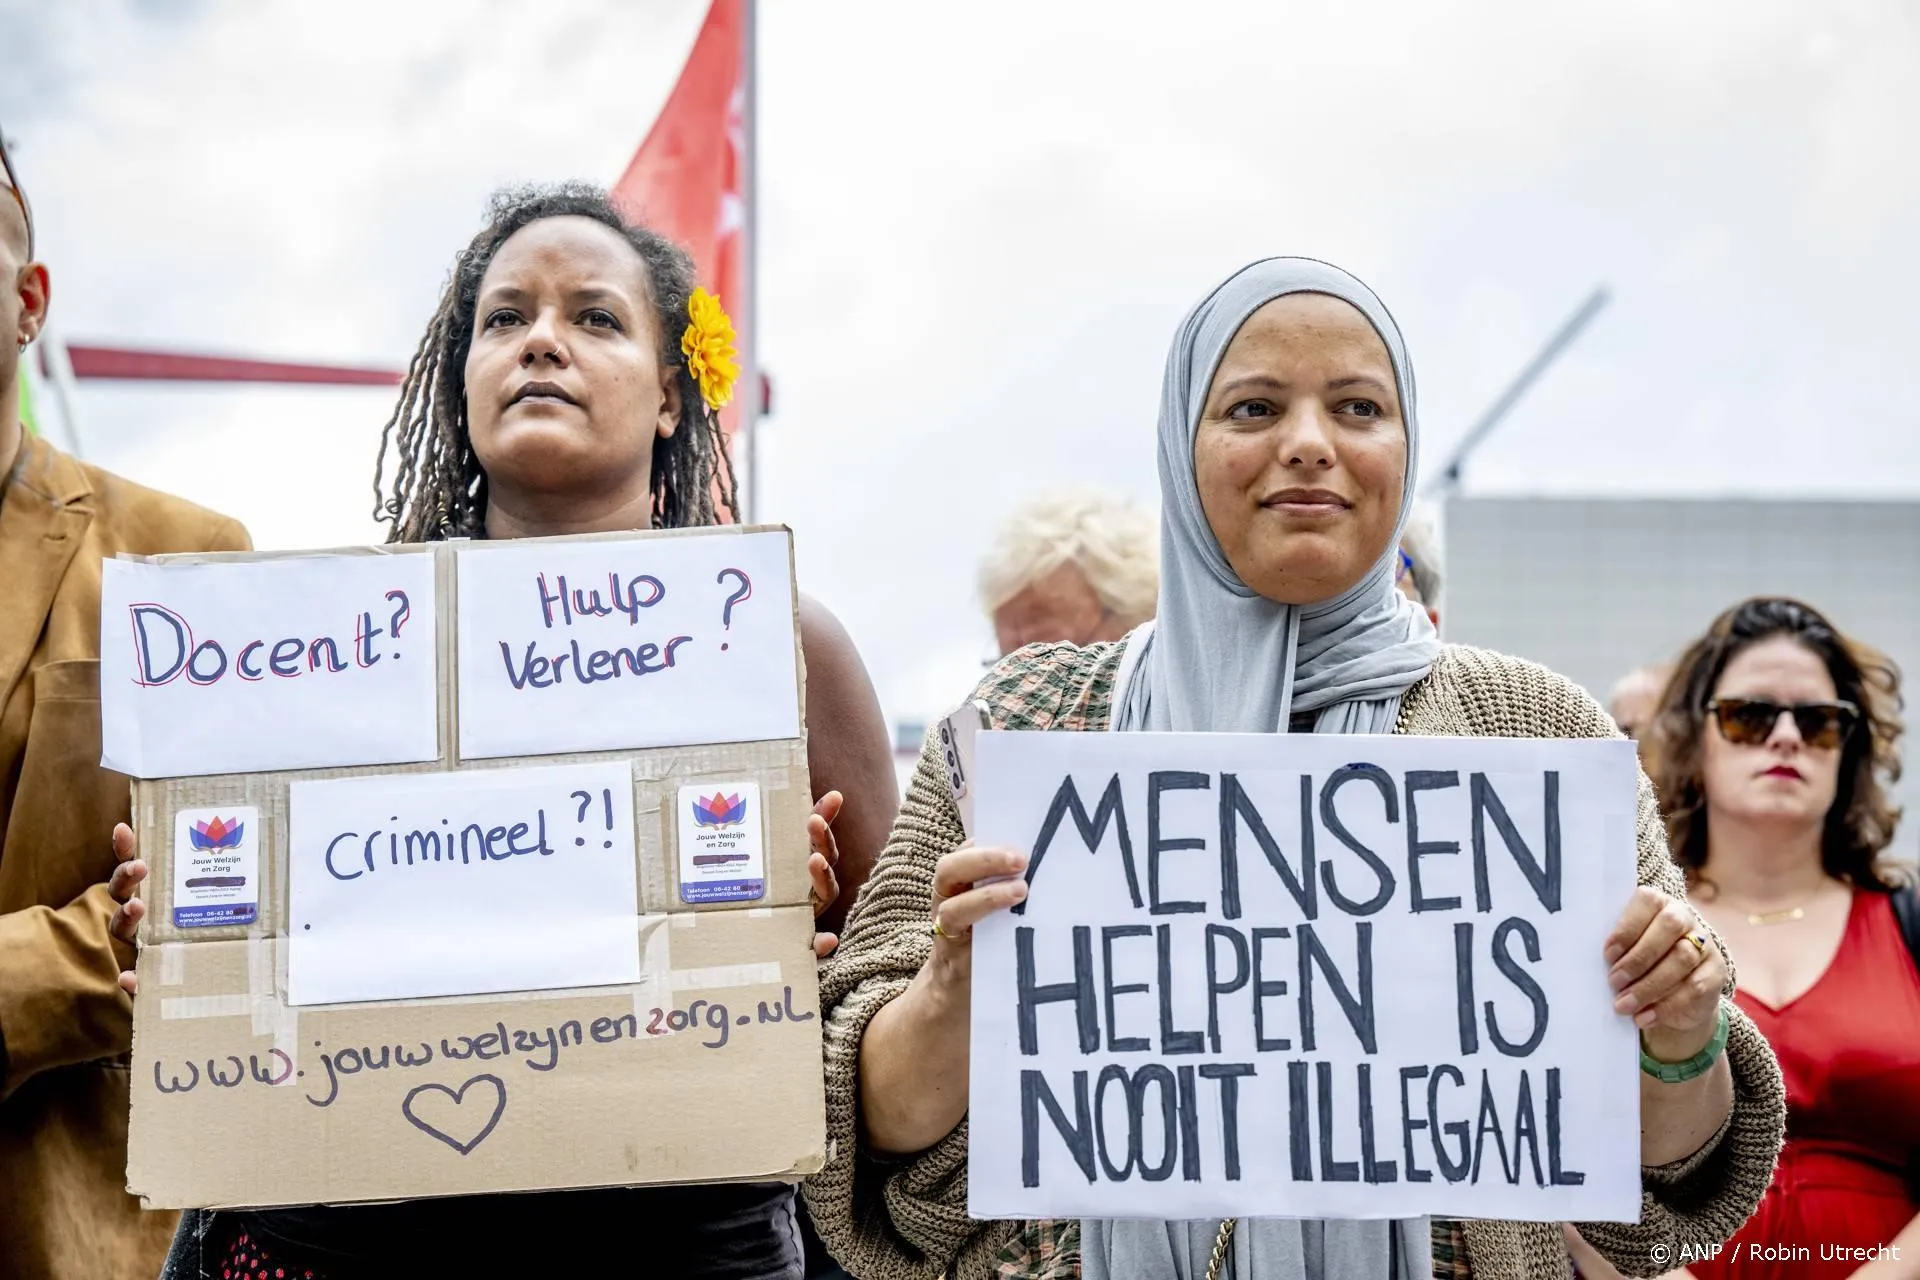 Docent?
Hulp
Verlener ?
Jouw Welzijn
en Zorg
Telefoon 06-42 80
www.jouwwelzijnenzorg.nl
crimineel ?!
Jouw Welzijn
en Zorg
Telefoon 06-42 80
www.jouwwelzijnenzorg.nl
www.jouwwelzynenzorg.NL
MENSEN
HELPEN IS
NOOIT ILLEGAAL
© ANP / Robin Utrecht